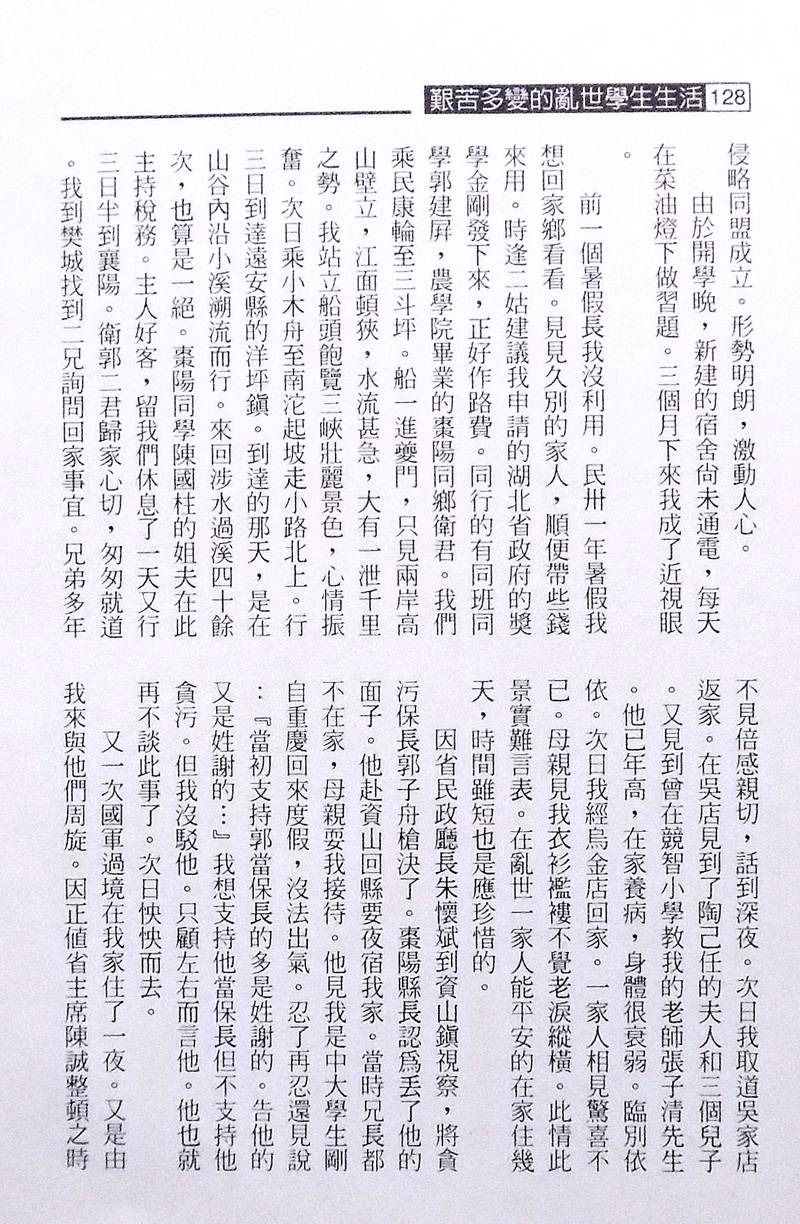 艱苦多變的亂世學生生活 128
侵略同盟成立。形勢明朗，激動人心。
由於開學晚，新建的宿舍尚未通電，每天
在菜油燈下做習題。三個月下來我成了近視眼
。
前一個暑假長我沒利用。民卅一年暑假我
想回家鄉看看。見見久別的家人，順便帶些錢
來用。時逢二姑建議我申請的湖北省政府的獎
學金剛發下來，正好作路費。同行的有同班同
學郭建屏，農學院畢業的棗陽同鄉衛君。我們
乘民康輪至三斗坪。船一進夔門，只見兩岸高
山壁立，江面頓狹，水流甚急，大有一泄千里
之勢。我站立船頭飽覽三峽壯麗景色，心情振
奮。次日乘小木舟至南沱起坡走小路北上。行
三日到達遠安縣的洋坪鎮。到達的那天，是在
山谷內沿小溪溯流而行。來回涉水過溪四十餘
次，也算是一絕。棗陽同學陳國柱的姐夫在此
主持稅務。主人好客，留我們休息了一天又行
三日半到襄陽。衛郭二君歸家心切，匆匆就道
。我到樊城找到二兄詢問回家事宜。兄弟多年
不見倍感親切，話到深夜。次日我取道吳家店
返家。在吳店見到了陶己任的夫人和三個兒子
。又見到曾在競智小學教我的老師張子清先生
。他已年高，在家養病，身體很衰弱。臨別依
依。次日我經烏金店回家。一家人相見驚喜不
已。母親見我衣衫襤褸不覺老淚縱橫。此情此
景實難言表。在亂世一家人能平安的在家住幾
天，時間雖短也是應珍惜的。
因省民政廳長朱懷斌到資山鎮視察，將貪
污保長郭子舟槍決了。棗陽縣長認爲丟了他的
面子。他赴資山回縣要夜宿我家。當時兄長都
不在家，母親耍我接待。他見我是中大學生剛
自重慶回來度假，沒法出氣。忍了再忍還見說
：『當初支持郭當保長的多是姓謝的。告他的
又是姓謝的…』我想支持他當保長但不支持他
貪污。但我沒駁他。只顧左右而言他。他也就
再不談此事了。次日怏怏而去。
又一次國軍過境在我家住了一夜。又是由
我來與他們周旋。因正值省主席陳誠整頓之時